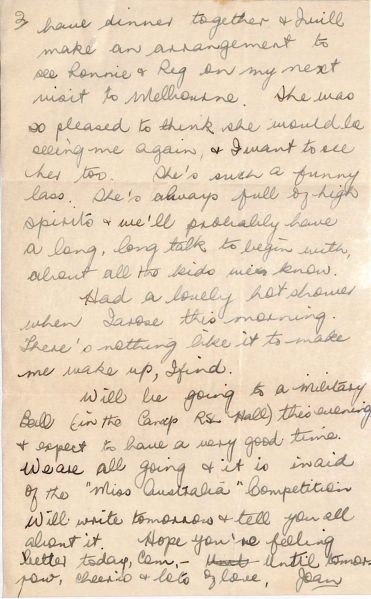 3,
have dinner together & I will
make an arrangement to
see Ronnie & Reg on my next
visit to Melbourne. She was
so pleased to think she would be
seeing me again, & I want to see
her too. She's such a funny
lass. She's always full of high
spirits & we'll probably have
a long, long talk to begin with,
about all the kids we know.
Had a lovely hot shower
when I arose this morning.
There's nothing like it to make
me wake up, I find.
Will be going to a Military
Ball (in the Camp Hall) this evening
& expect to have a very good time.
We are all going & it is in aid
of the "Miss Australia" Competition
Will write tomorrow & tell you all
about it. Hope you're feeling
better today, - Until tomor-
row, cheerio & lots of love, Joan